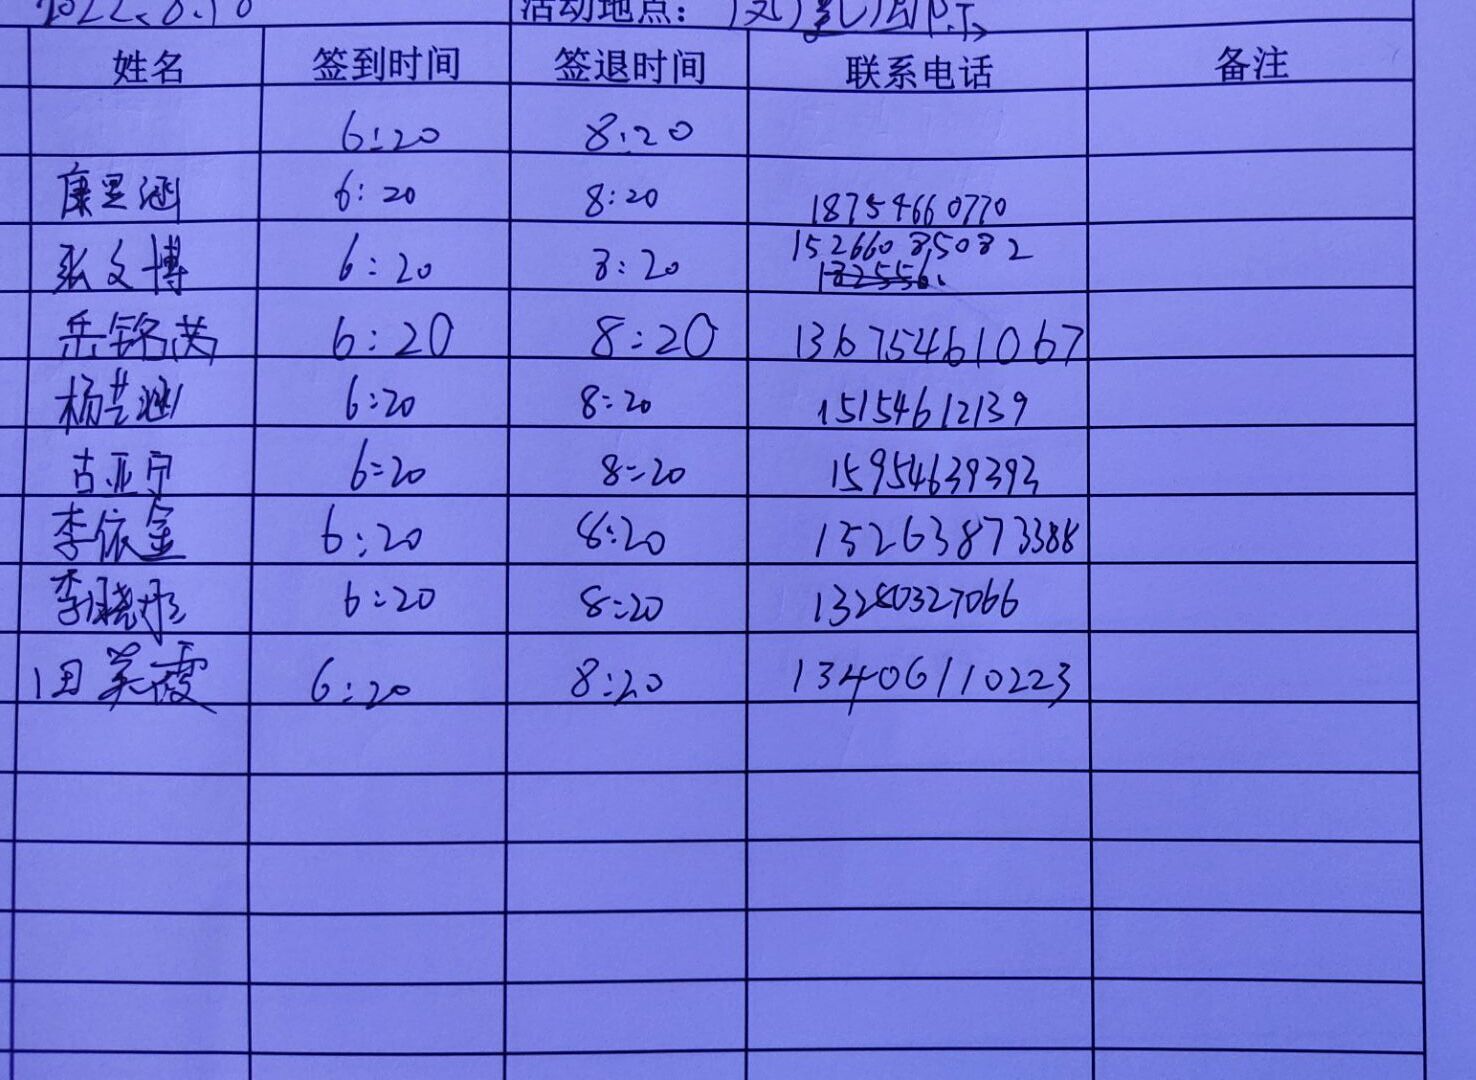 2022.8.10 活动地点：
姓名 签到时间 签退时间 联系电话 备注
6:20 8:20
康思涵 6:20 8:20 18754660770
张文博 6:20 8:20 15266085082
岳铭芮 6:20 8:20 13675461067
杨芸涵 6:20 8:20 15154612139
古亚宁 6:20 8:20 15954639393
李依金 6:20 8:20 15263873388
李晓彤 6:20 8:20 13280327066
田英霞 6:20 8:20 13406110223